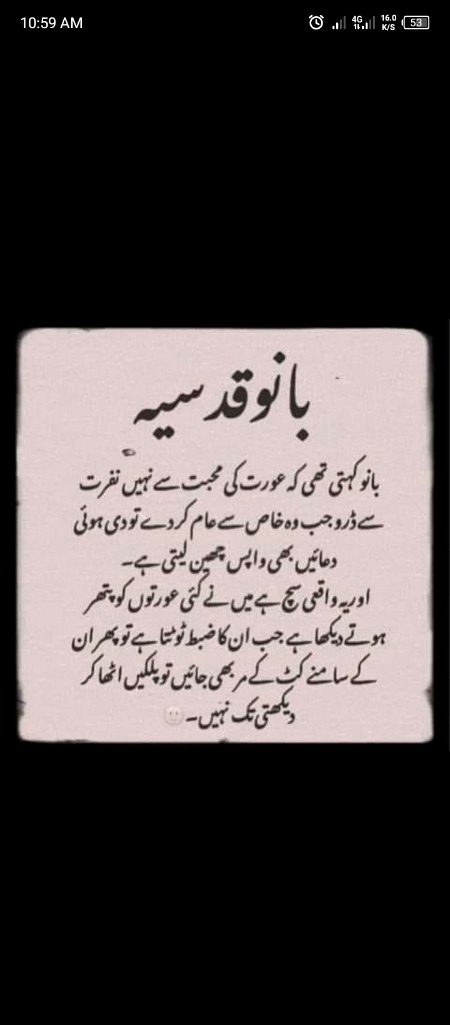 10:59 AM
4G
16.0
K/S
53
بانو قدسیہ
بانو کہتی تھی کہ عورت کی محبت سے نہیں نفرت
سے ڈرو جب وہ خاص سے عام کر دے تو دی ہوئی
دعائیں بھی واپس چھین لیتی ہے۔
اور یہ واقعی سچ ہے میں نے کئی عورتوں کو پتھر
ہوتے دیکھا ہے جب ان کا ضبط ٹوٹتا ہے تو پھر ان
کے سامنے کٹ کے مر بھی جائیں تو پلکیں اٹھا کر
دیکھتی تک نہیں۔🙂